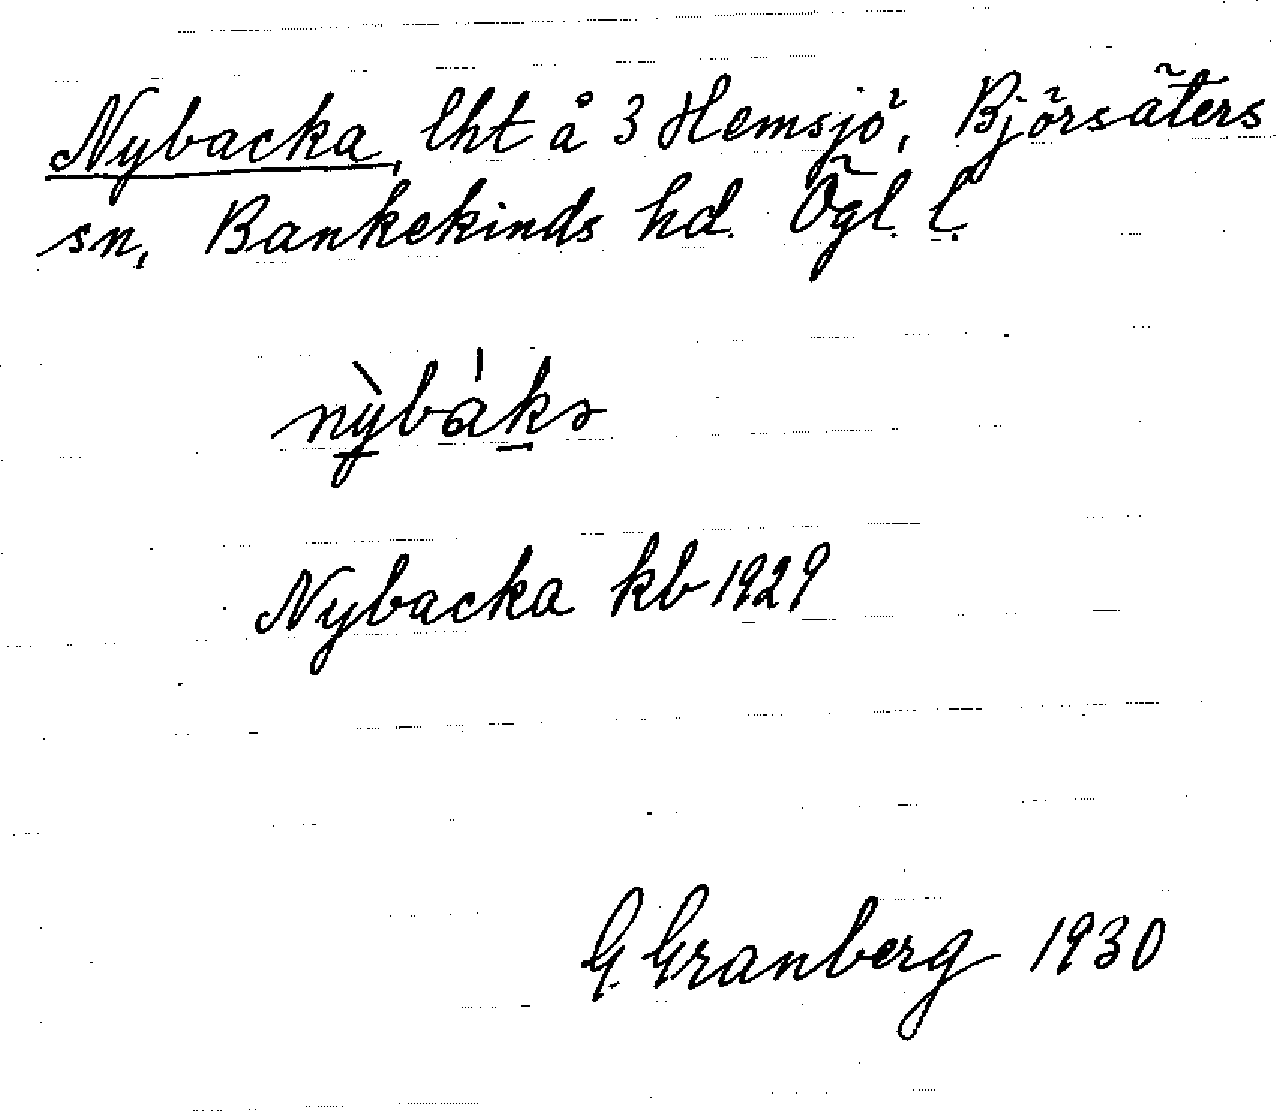 Nybacka, lht å 3 Hemsjö, Björsäters
sn, Bankekinds hd. Ögl. l.
nỳbákə
Nybacka kb 1929
G. Granberg 1930